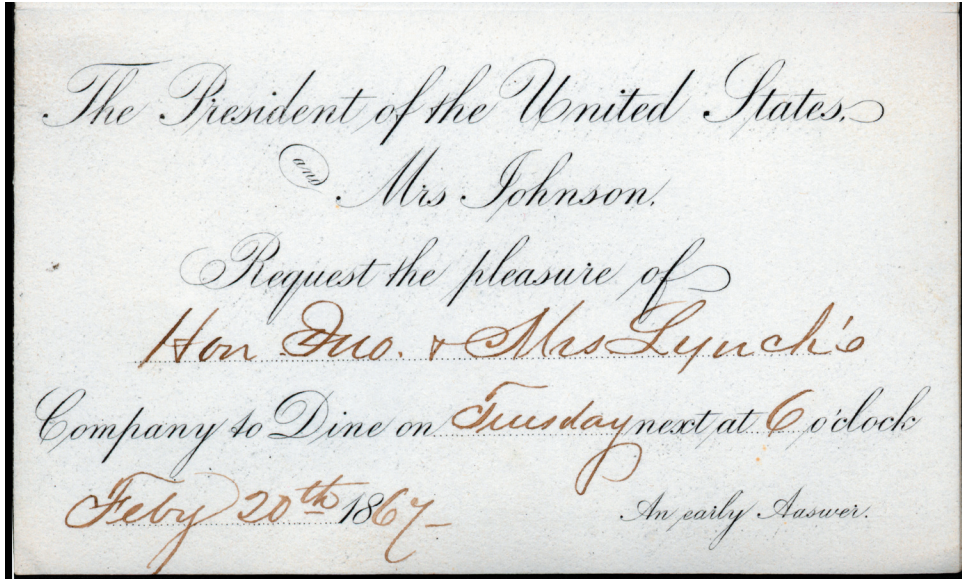 The President of the United States.
and
Mrs Johnson.
Request the pleasure of
Hon Jno. & Mrs Lynch's
Company to Dine on Tuesday next at 6 o'clock
Feby 20th 1867
An early Answer.